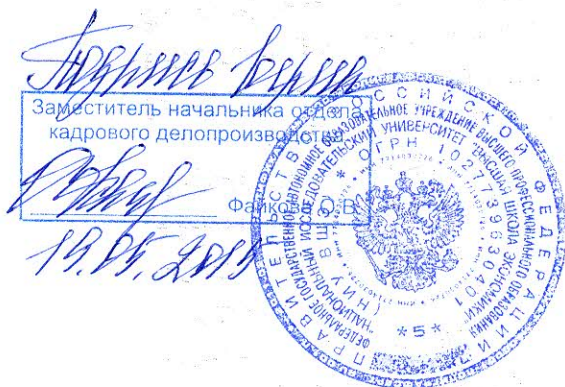 Подпись верна
Заместитель начальника отдела
кадрового делопроизводства
О.В.
ПРАВИТЕЛЬСТВО РОССИЙСКОЙ ФЕДЕРАЦИИ
ФЕДЕРАЛЬНОЕ ГОСУДАРСТВЕННОЕ АВТОНОМНОЕ ОБРАЗОВАТЕЛЬНОЕ УЧРЕЖДЕНИЕ ВЫСШЕГО ПРОФЕССИОНАЛЬНОГО ОБРАЗОВАНИЯ
"НАЦИОНАЛЬНЫЙ ИССЛЕДОВАТЕЛЬСКИЙ УНИВЕРСИТЕТ "ВЫСШАЯ ШКОЛА ЭКОНОМИКИ"
(НИУ ВШЭ) * ОГРН 1027739630401
*5*